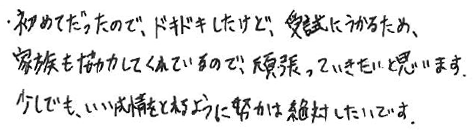 ・初めてだったので、ドキドキしたけど、受試にうかるため、
家族も協力してくれているので、頑張っていきたいと思います。
少しでも、いい成績をとれるように努力は絶対したいです。